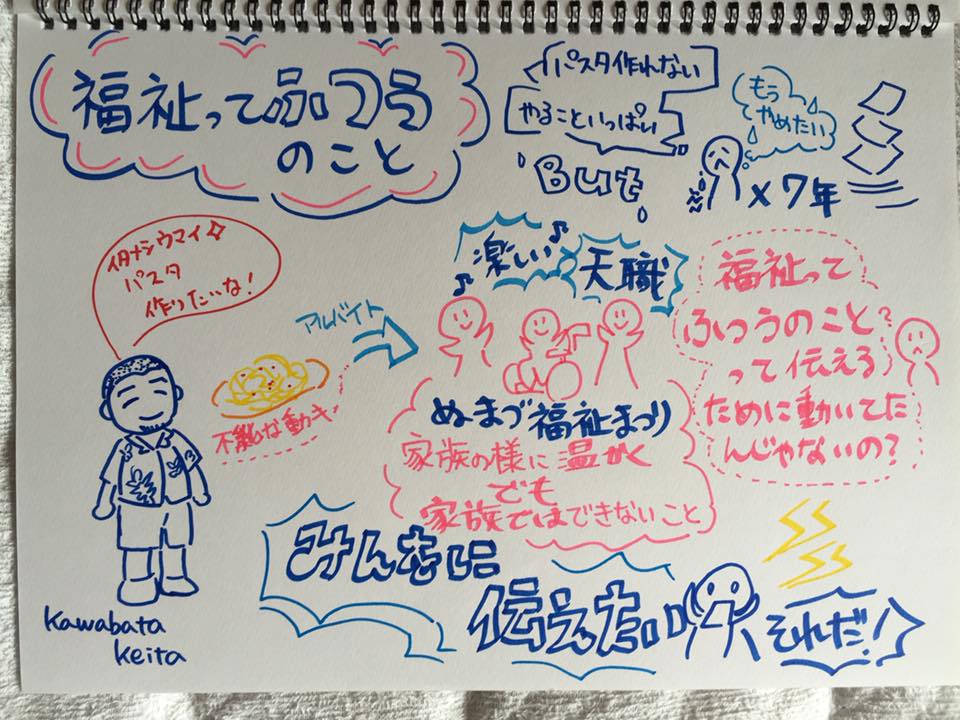 福祉ってふつう
のこと
パスタ作れない
やることいっぱい
But
もう
やめたい
×7年
イタメシウマイ
パスタ
作りたいな!
アルバイト
不純な動き
楽しい
天職
ぬまづ福祉まつり
家族の様に温かく
でも
家族ではできないこと
福祉って
ふつうのこと?
って伝える
ために動いてた
んじゃないの?
みんなに
伝えたい
それだ!
Kawabata
Keita